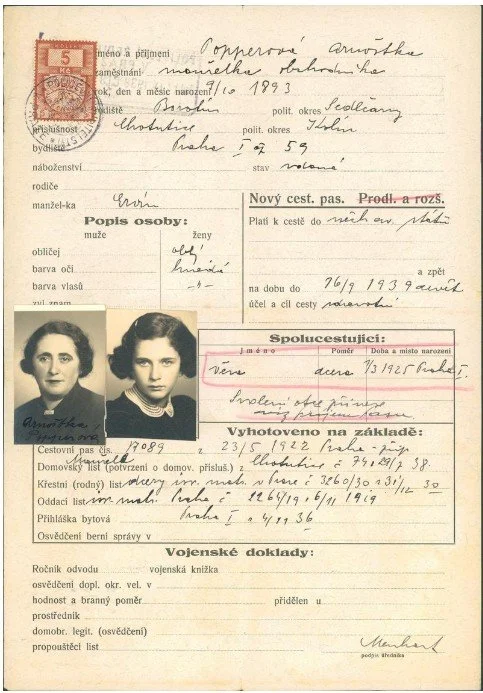 jméno a příjmení Popperová Arnoštka
zaměstnání manželka obchodníka
rok, den a měsíc narození 9/10 1893
rodiště polit. okres Sedlčany
příslušnost Chotutice polit. okres Kolín
bydliště Praha I čp 59
náboženství stav vdaná
rodiče
manžel-ka Ervín
Popis osoby:
muže ženy
obličej oblý
barva očí hnědá
barva vlasů -"-
zvl. znam.
Nový cest. pas. Prodl. a rozš.
Platí k cestě do států
a zpět
na dobu do 1939
účel a cíl cesty
5
Kč
Arnoštka
Popperova
Spolucestující:
jméno Poměr Doba a místo narození
Věra dcera 7/3 1925 Praha I.
Svolení otce
Vyhotoveno na základě:
Cestovní pas čís. 17089 z 23/5 1922 Praha
Domovský list (potvrzení o domov. přísluš.) z Chotutice č 38.
Křestní (rodný) list dcery izr. mat. v Praze č 3260/30 z 31/12 30
Oddací list izr. mat. Praha č 1264/19 6/11 1919
Přihláška bytová Praha I z 4/11 36
Osvědčení berní správy v
Vojenské doklady:
Ročník odvodu vojenská knížka
osvědčení dopl. okr. vel. v
hodnost a branný poměr přidělen u
prostředník
domobr. legit. (osvědčení)
propouštěcí list
podpis úředníka